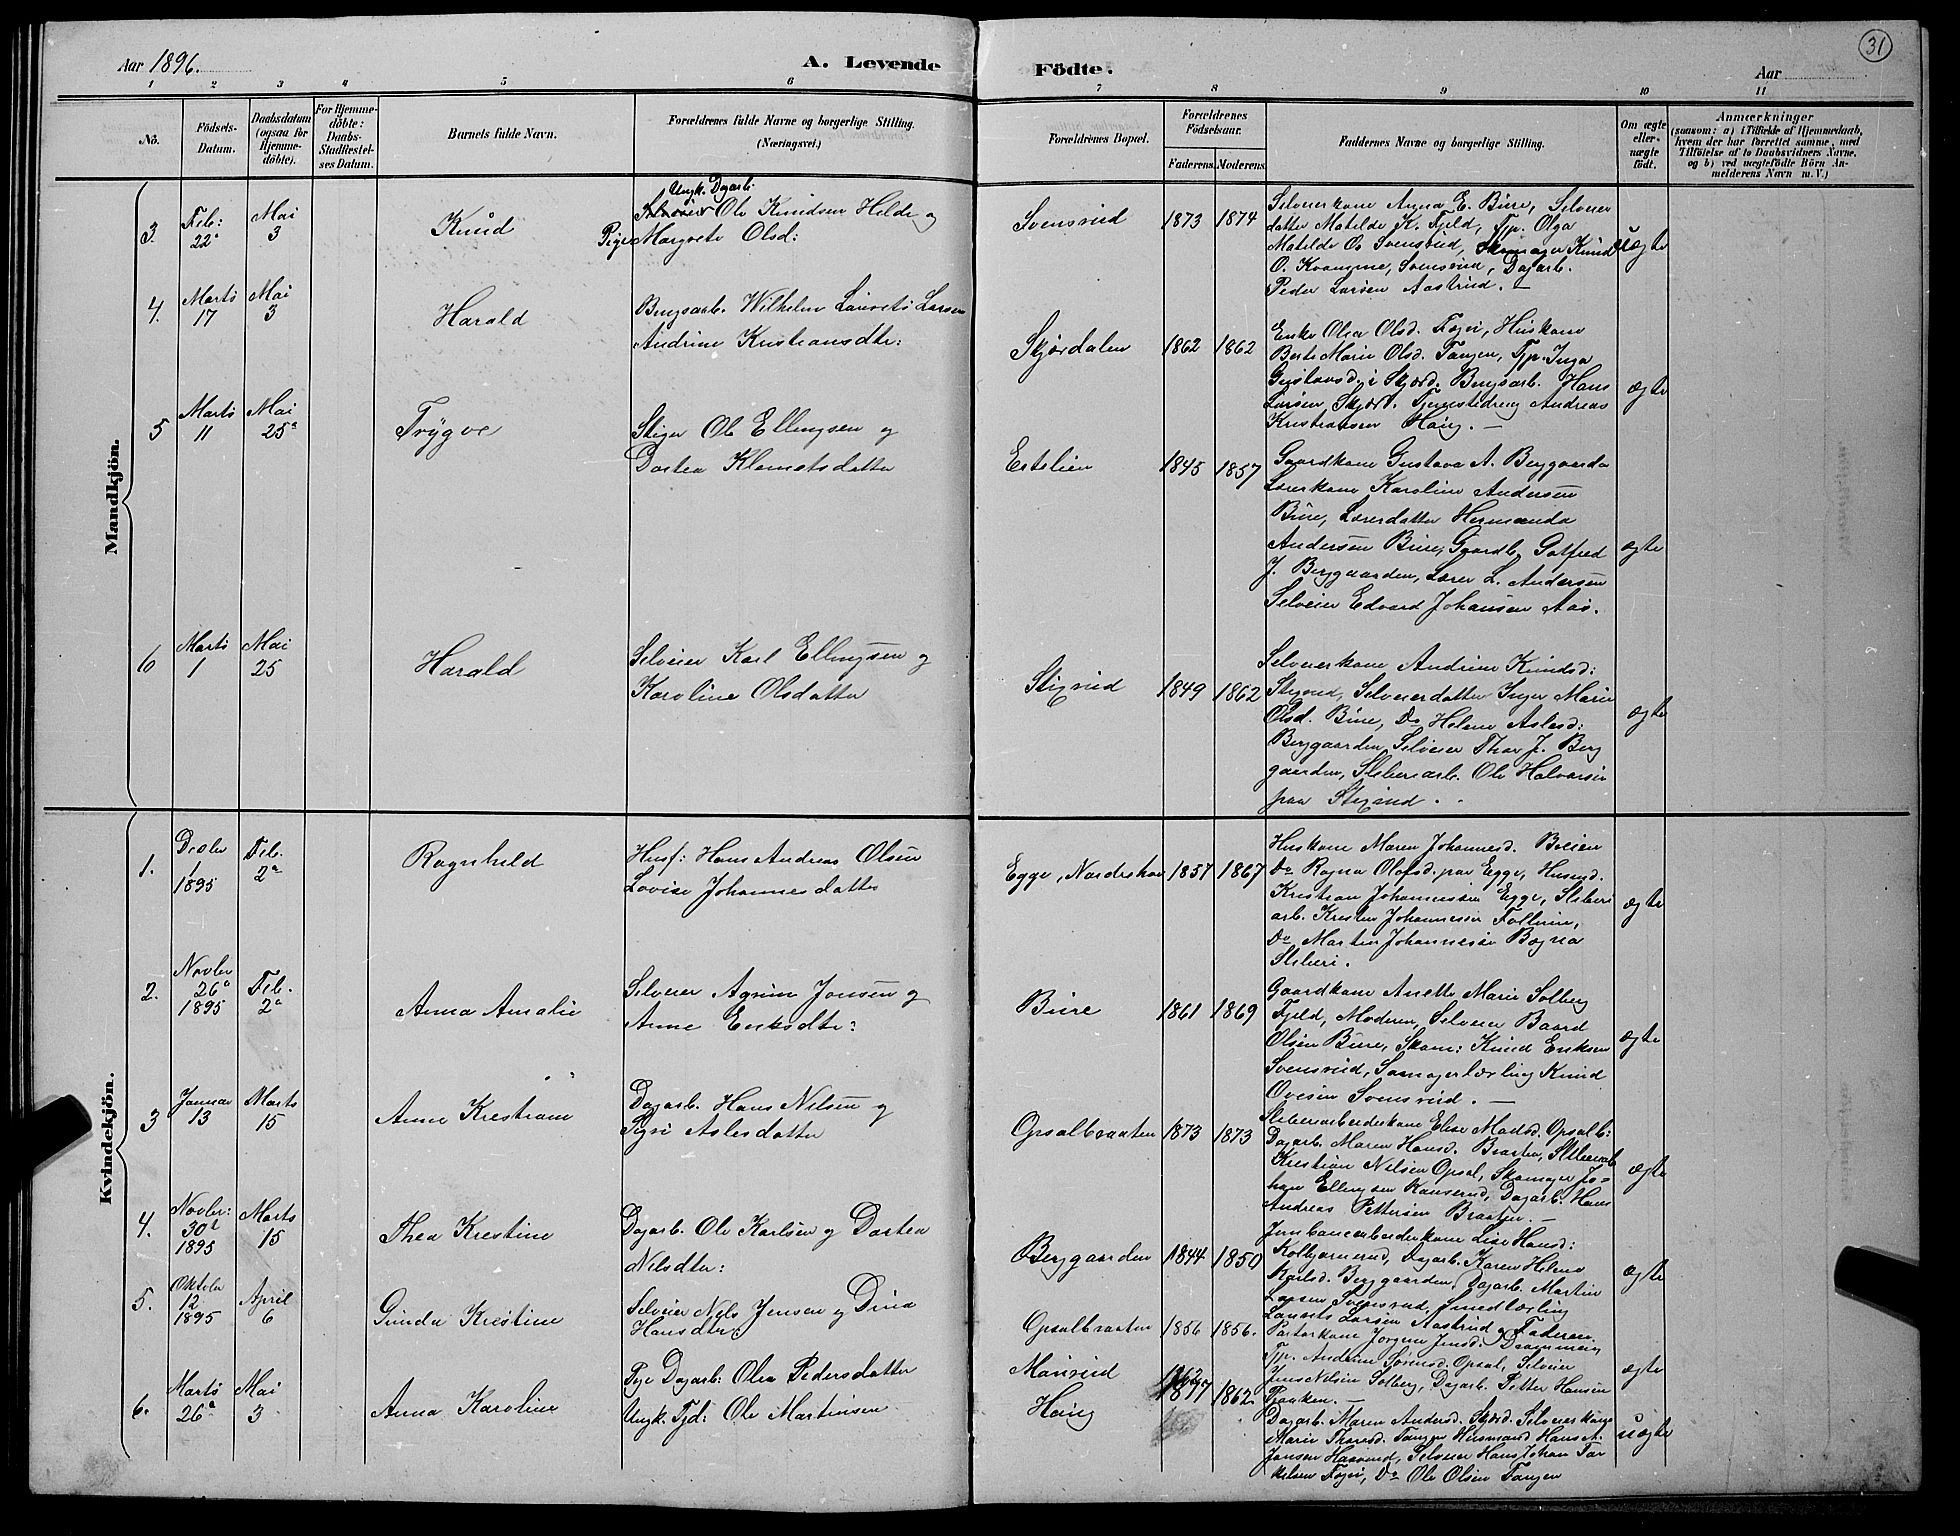 Aar 1896.
A. Levende
Födte.
Aar
31
1 2 3 4 5 6 7 8 9 10 11
No.
Födsels-
Datum.
Daabsdatum
(ogsaa for
Hjemme-
döbte).
For Hjemme-
döbte:
Daabs-
Stadfæstel-
ses Datum.
Barnets fulde Navn.
Forældrenes fulde Navne og borgerlige Stilling.
(Næringsvei.)
Forældrenes Bopæl.
Forældrenes
Födselsaar.
Faderens. Moderens.
Faddernes Navne og borgerlige Stilling.
Om ægte
eller
uægte
födt.
Anmærkninger
(saasom: a) i Tilfælde af Hjemmedaab,
hvem der har forrettet samme, med
Tilföielse af to Daabsvidners Navne,
og b) ved uægtefödte Börn An-
melderens Navn m. V.)
Mandkjön.
3.
Feb:
22
Mai
3
Knud
Ungk. Dagarb:
Selveier Ole Knudsen Hilde og
Pige Margrete Olsd:
Svensrud
1873 1874
Selveierkone Anna E. Bure, Selveier
datter Matilde K. Fjeld, Tjp. Olga
Matilde O. Svensrud, Skomager Knud
O. Kvamme, Svensrud, Dagarb.
Peder Larsen Aastrud. —
uægte
4.
Marts
17
Mai
3
Harald
Brugsarb. Wilhelm Laurets Larsen
Andrine Kristiansdtr:
Skjørdalen
1862 1862
Enke Olea Olsd. Fager, Huskone
Berte Marie Olsd. Tangen, Tjp. Inga
Gustavsd. i Skjørd. Brugsarb. Hans
Larsen Skjørd. Tjenestedreng Andreas
Kristiansen Haug. —
ægte
5
Marts
11
Mai
25
Trygve
Stiger Ole Ellingsen og
Dortea Klemetsdatter
Estelien
1845 1857
Gaardkone Gustava A. Berggaarden
Lærerkone Karoline Andersen
Bure, Lærerdatter Hermanda
Andersen Bure, Gaardb. Gotfred
J. Berggaarden, Lærer L. Andersen
Selveier Edvard Johansen Aas.
ægte
6
Marts
1
Mai
25
Harald
Selveier Karl Ellingsen og
Karoline Olsdatter
Stixrud
1849 1862
Selveierkone Andrine Knudsd:
Stixrud, Selveierdatter Inger Marie
Olsd. Bure, Do Helene Aslesd:
Berggaarden, Selveier Thor J. Berg
gaarden, Sliberiarb. Ole Halvorsen
paa Stixrud.
ægte
Kvindekjön.
1.
Decbr
1
1895
Feb.
2
Ragnhild
Husf: Hans Andreas Olsen
Lovise Johannesdatter
Egge, Norderhov
1857 1867
Huskone Maren Johannesd. Breien
Do Ragna Olafsd. paa Egge, Husmd.
Kristian Johannessen Egge, Sliberi
arb. Kristen Johannessen Follum,
Do Martin Johannessen Bægna
Sliberi.
ægte
2.
Novbr
26
1895
Feb.
2
Anna Amalie
Selveier Agrim Jonsen og
Anne Eriksdtr:
Bure
1861 1869
Gaardkone Anette Marie Solberg
Fjeld, Moderen, Selveier Baard
Olsen Bure, Skom: Knud Eriksen
Svensrud, Skomagerlærling Knud
Ovesen Svensrud. —
ægte
3
Januar
13
Marts
15
Anne Kristiane
Dagarb. Hans Nilsen og
Siri Aslesdatter
Opsalbraaten
1873 1873
Sliberiarbeiderkone Elise Madsd. Opsalb:
Dagarb. Maren Hansd. Braaten, Sliberiarb.
Kristian Nilsen Opsal, Skomager Jo-
han Ellingsen Hanserud, Dagarb. Hans
Andreas Pettersen Braaten. —
ægte
4.
Novbr:
30
1895
Marts
15
Thea Kristine
Dagarb. Ole Karlsen og Dortea
Nilsdtr:
Berggaarden
1844 1850
Jernbanearbeiderkone Lise Hansd:
Kolbjørnrud, Dagarb. Karen Helene
Karlsd. Berggaarden, Dagarb. Martin
Larsen Svensrud, Smedlærling
Laurets Larsen Aastrud og Faderen.
ægte
5.
Oktober
12
1895
April
6
Gunda Kristine
Selveier Nils Jensen og Dina
Hansdtr:
Opsalbraaten
1856 1856.
Pastorkone Jørgine Jensd. Drammen
Tjp. Andrine Sørensd. Opsal, Selveier
Jens Nilsen Solberg, Dagarb. Petter Hansen
ægte
6.
Marts
26
Mai
3
Anna Karoline
Pige Dagarb: Olea Pedersdatter
Ungk. Tjd: Ole Martinsen
Haug
1877 1862
Dagarb. Maren Andersd. Skjørd. Selveierkone
Marie Thoresd. Tangen Husmand Hans A.
Jensen Haverud, Selveier Hans Johan Tor
kelsen Fager, Do Ole Olsen Tangen
uægte